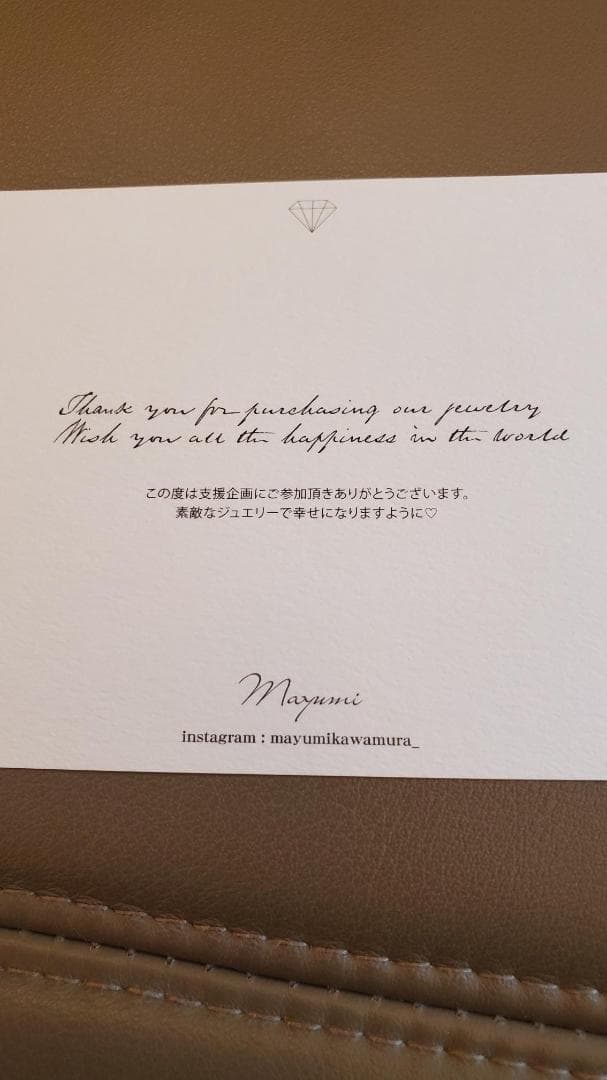 Thank you for purchasing our jewelry
Wish you all the happiness in the world
この度は支援企画にご参加頂きありがとうございます。
素敵なジュエリーで幸せになりますように♡
Mayumi
instagram : mayumikawamura_